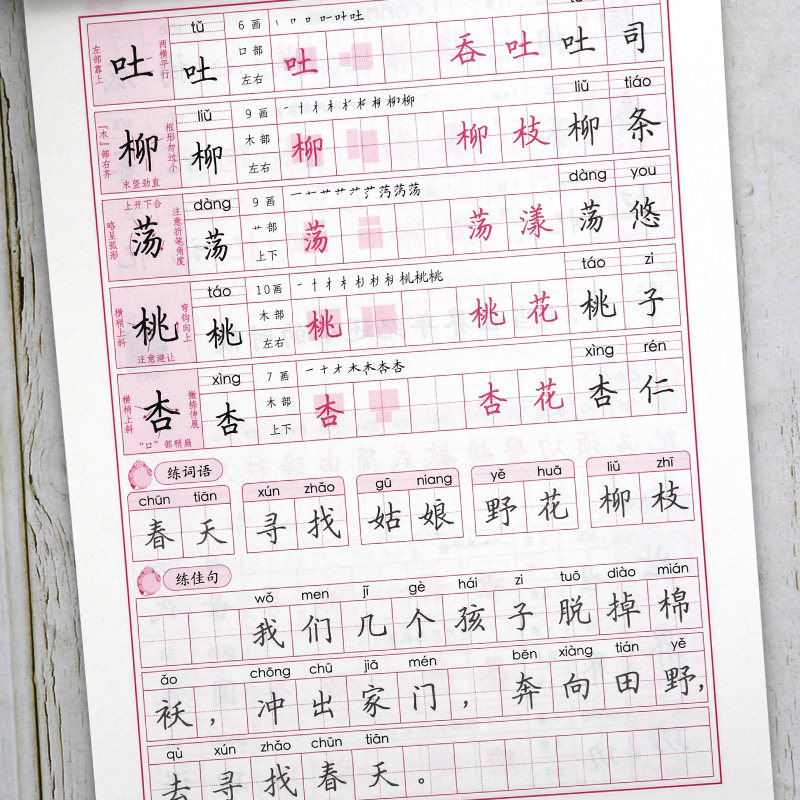 左部靠上 吐 两横平行 tǔ 吐 6画 口部 左右 丨 口 口 叶 吐 吐 吞 吐 吐 司
liǔ liǔ tiáo
“木”部右齐 柳 框形勿过小 末竖劲直 柳 9画 木部 左右 柳 柳 枝 柳 条
dàng dàng you
上开下合 略呈弧形 荡 注意折笔角度 荡 9画 艹部 上下 荡 荡 漾 荡 悠
táo táo zi
横稍上斜 桃 弯钩向上 注意避让 桃 10画 木部 左右 桃 桃 花 桃 子
xìng xìng rén
横稍上斜 杏 撇捺伸展 “口”部稍扁 杏 7画 木部 上下 杏 杏 花 杏 仁
练词语
chūn tiān xún zhǎo gū niang yě huā liǔ zhī
春天 寻找 姑娘 野花 柳枝
练佳句
wǒ men jǐ gè hái zi tuō diào mián
我们几个孩子脱掉棉
ǎo chōng chū jiā mén bēn xiàng tián yě
袄，冲出家门，奔向田野，
qù xún zhǎo chūn tiān
去寻找春天。